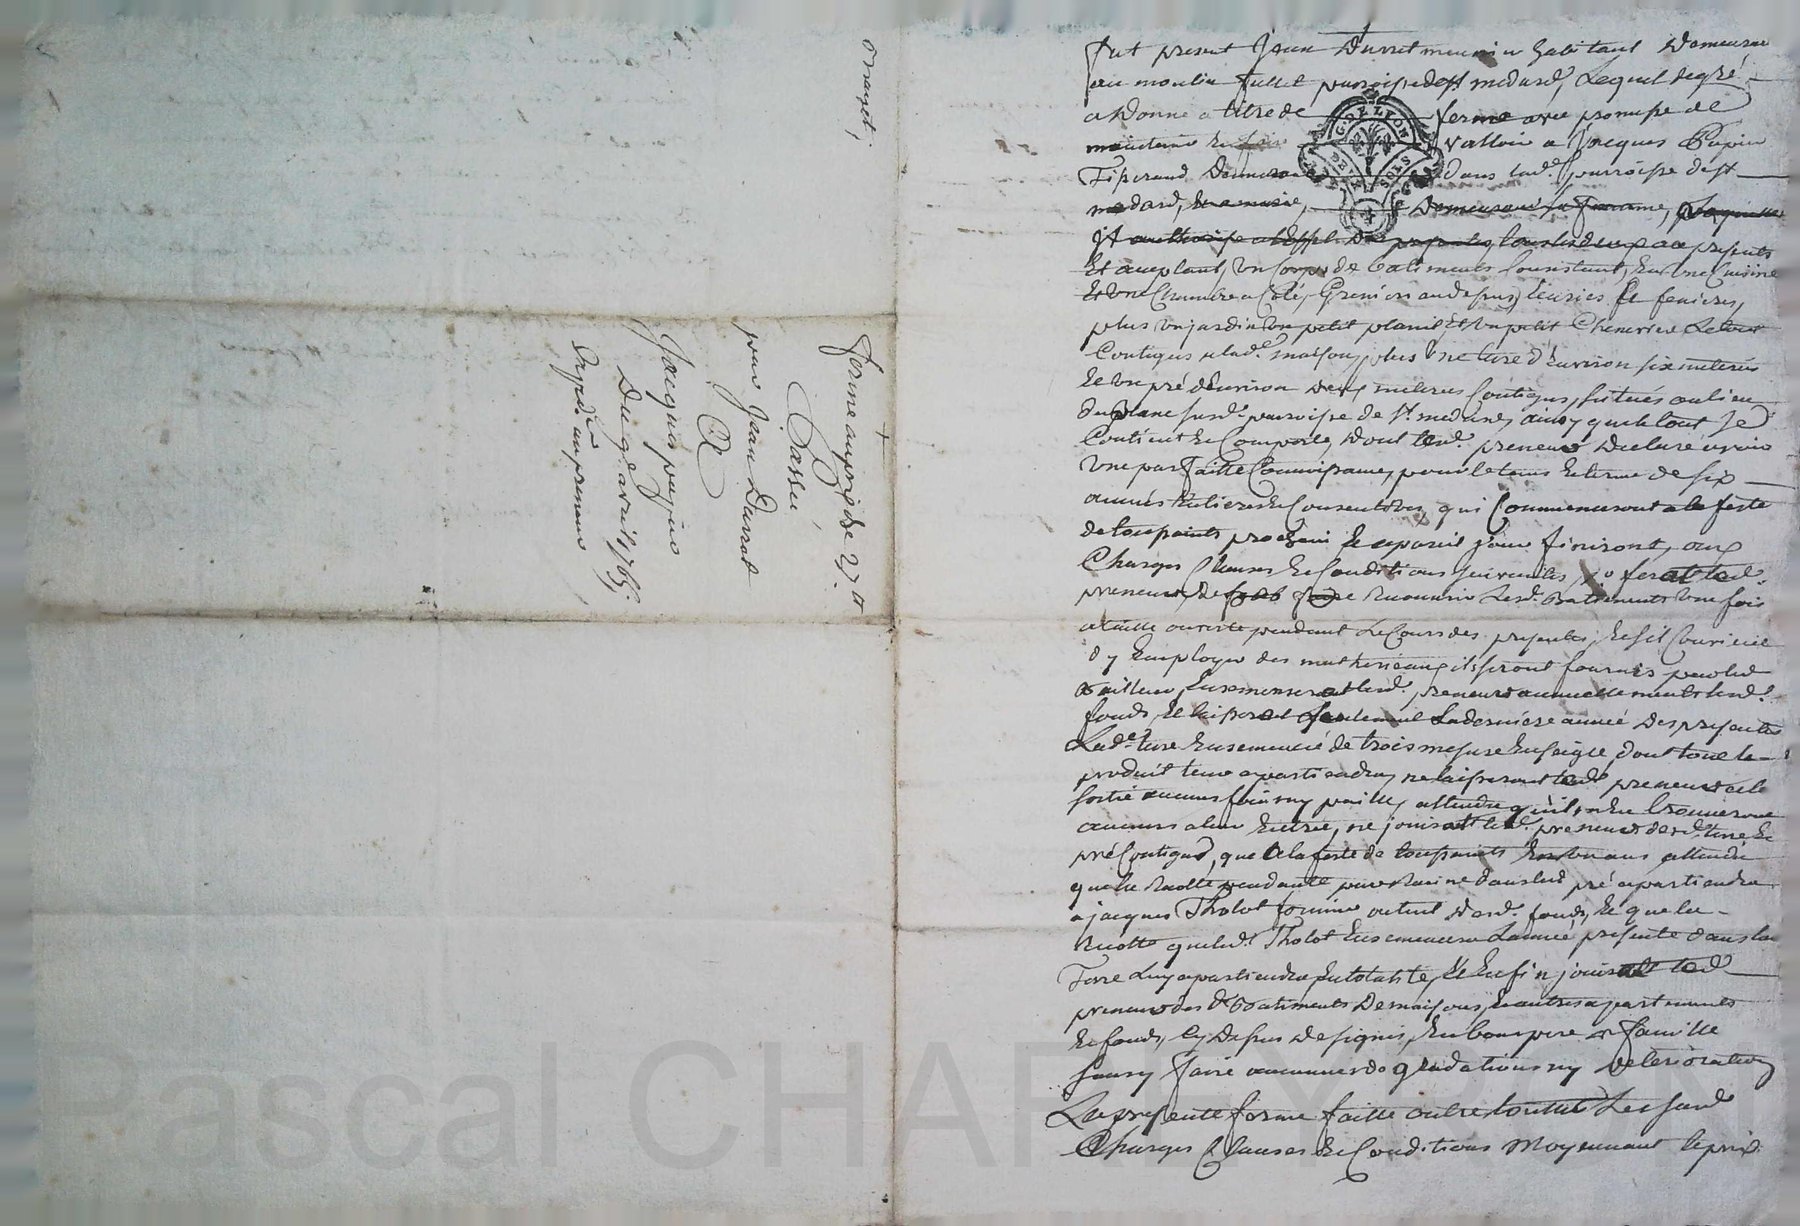 orranget,
ferme au prix de 27 #
Passée
par Jean Durret
A
Jacques pepin
Du 9e avril 1765
Expé. au preneur
Fut present Jean Durret meunier habitant Demeurant
au moulin paroisse de St medard, Lequel de gré
a Donné a titre de ferme avec promesse de
maintenir & faire valloir a Jacques Pepin
Tisserand Demeurant dans lad. parroisse de St
medard,
presents
Et acceptant, un Corps de batiments Consistant, En une Cuisine
Et une Chambre a Coté, Grenier au dessus, Ecuries & fenieres,
plus un jardin un petit et un petit Chenevier Le tout
Contigus a lad. maison, plus une terre d'Environ six meterés
Et un pré d'Environ deux meterés Contigus, scitués au lieu
susd. parroisse de St. medard, ainsy que le tout se
Contient Et Comporte, Dont led. preneur Declare avoir
une parfaitte Connoissance, pour le tems Et terme de six
années Entieres & Consecutives, qui Commenceront a la feste
de toussaints prochain Et a pareil jour finiront, aux
Charges Clauses & Conditions suivantes, 1.o ferat led.
preneur, Recouvrir Lesd. Batiments une fois
a taille ouverte pendant Le Cours des presentes, Et s'il Convient
d'y Employer des matheriaux ils seront fournis par led
Bailleur, Ensemenserat led. preneur annuellement lesd.
fonds, Et laisserat seulement La derniere année Des presentes
Lad. terre Ensemencée de trois mesure En seigle, dont tout le
produit leur apartiendra, ne laisserat led. preneur a la
sortie aucuns foins ny paille, attendu qu'il n'En trouverat
aucuns a leur Entrée, ne jouirat led. preneur des d. terre Et
pré Contigus, que a la feste de toussaints En un ans attendu
que la Recolte pendante par Racine dans led pré apartiendra
a jacques Tholot fermier actuel Desd. fonds, Et que la
Recolte que led. Tholot Ensemencera L'année presente dans la
Terre Luy apartiendra En totalité, Et Enfin jouirat led.
preneur des d. Batiments De maisons, Et autres apartenances
Et fonds, Cy Dessus Designés, En bon pere de famille
sans y faire aucunes degradations ny Deterioration
La presente ferme faitte outre touttes Les susd.
Charges Clauses & Conditions Moyennant le prix
G. DE LYON
DEUX SOLS
Pascal CHAPLY